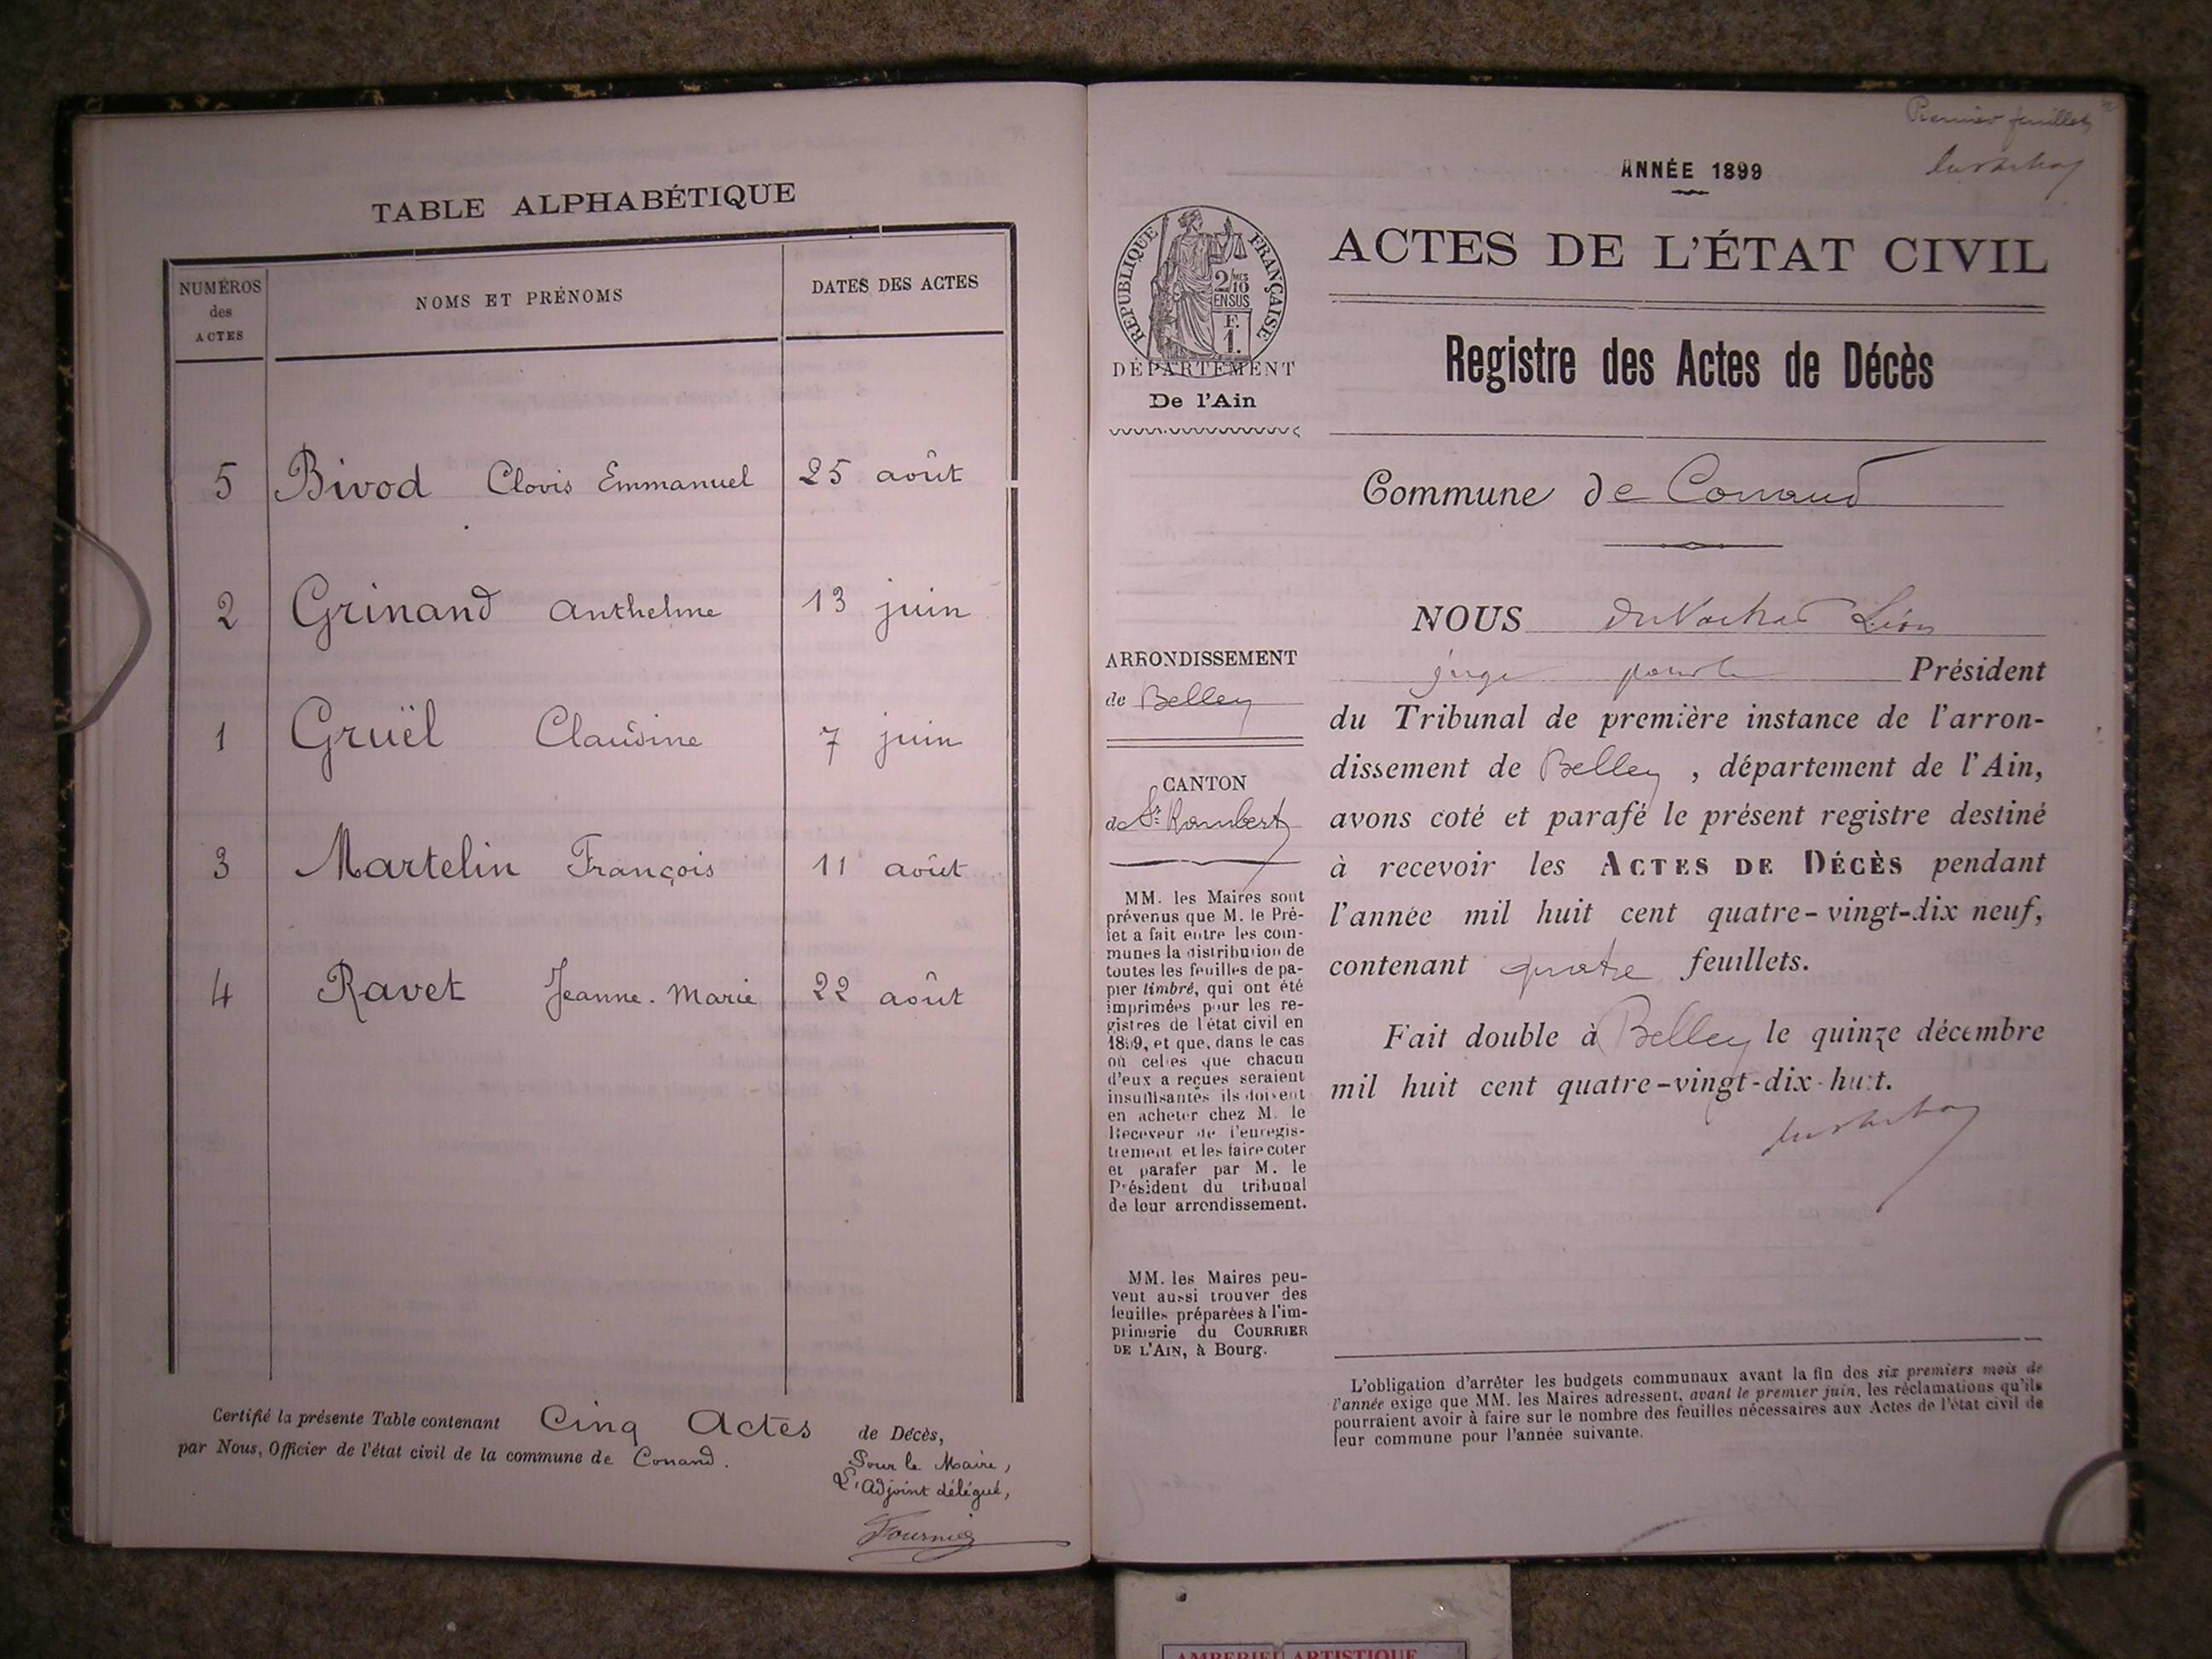 TABLE ALPHABÉTIQUE
NUMÉROS
des
ACTES
NOMS ET PRÉNOMS
DATES DES ACTES
5 Bivod Clovis Emmanuel 25 août
2 Grinand Anthelme 13 juin
1 Gruël Claudine 7 juin
3 Martelin François 11 août
4 Ravet Jeanne-Marie 22 août
Certifié la présente Table contenant Cinq Actes de Décès,
par Nous, Officier de l'état civil de la commune de Conand.
Pour le Maire,
L'Adjoint délégué,
Fournier
Premier feuillet
ANNÉE 1899
RÉPUBLIQUE FRANÇAISE
2/10 MES
EN SUS
F.
1.
DÉPARTEMENT
De l'Ain
ACTES DE L'ÉTAT CIVIL
Registre des Actes de Décès
Commune de Conand
ARRONDISSEMENT
de Belley
CANTON
de St Rambert
MM. les Maires sont
prévenus que M. le Pré-
fet a fait entre les com-
munes la distribution de
toutes les feuilles de pa-
pier timbré, qui ont été
imprimées pour les re-
gistres de l'état civil en
1899, et que, dans le cas
où celles que chacun
d'eux a reçues seraient
insuffisantes ils doivent
en acheter chez M. le
Receveur de l'enregis-
trement et les faire coter
et parafer par M. le
Président du tribunal
de leur arrondissement.
MM. les Maires peu-
vent aussi trouver des
feuilles préparées à l'im-
primerie du COURRIER
DE L'AIN, à Bourg.
NOUS Léon
juge pour le Président
du Tribunal de première instance de l'arron-
dissement de Belley, département de l'Ain,
avons coté et parafé le présent registre destiné
à recevoir les ACTES DE DÉCÈS pendant
l'année mil huit cent quatre-vingt-dix neuf,
contenant quatre feuillets.
Fait double à Belley le quinze décembre
mil huit cent quatre-vingt-dix-huit.
L'obligation d'arrêter les budgets communaux avant la fin des six premiers mois de
l'année exige que MM. les Maires adressent, avant le premier juin, les réclamations qu'ils
pourraient avoir à faire sur le nombre des feuilles nécessaires aux Actes de l'état civil de
leur commune pour l'année suivante.
AMBERIEU ARTISTIQUE